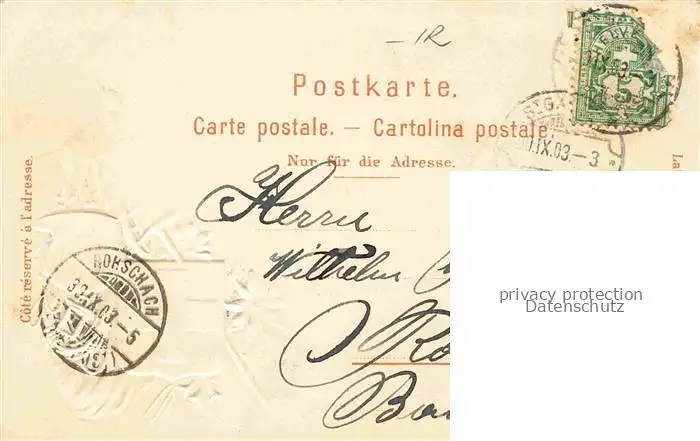 1R
Postkarte.
Carte postale. — Cartolina postale.
Nur für die Adresse.
Côté réservé à l'adresse.
La
Herrn
Wilhelm
Ro
30.IX.03.–3
RORSCHACH
30.IX.03.–5
privacy protection
Datenschutz